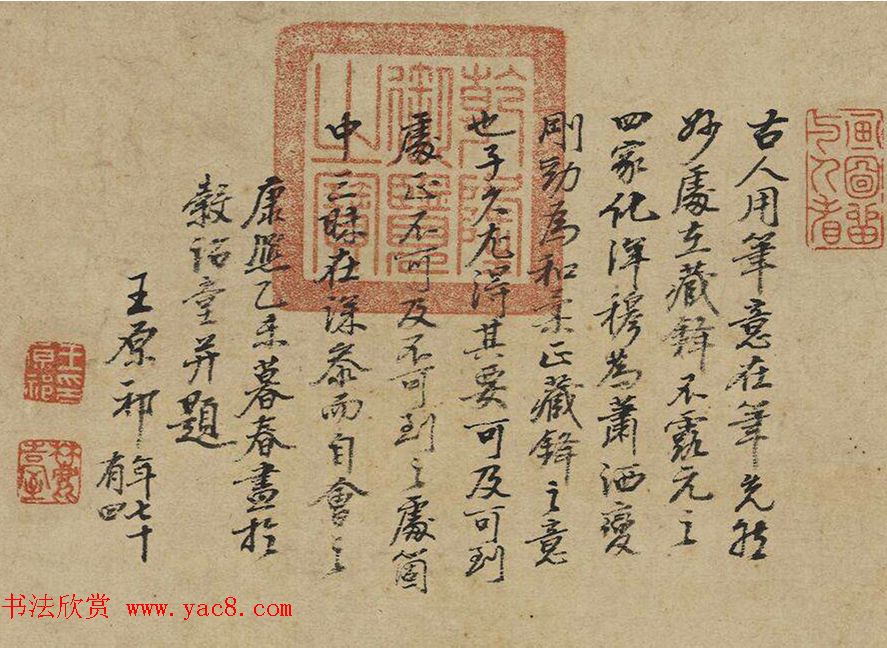 古人用筆意在筆先然
妙處在藏鋒不露元之
四家化渾穆為蕭洒變
剛勁為和柔正藏鋒之意
也子久尤得其要可及可到
處正不可及不可到之處箇
中三昧在深參而自會之
康熙乙未暮春畫於
穀詒堂并題
王原祁年七十
有四
乾隆
御覽
之寶
畫圖留
與人看
王原
祁印
書法欣赏 www.yac8.com